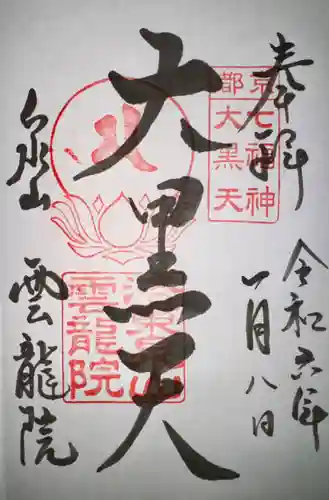 奉拝
令和六年
一月八日
京都
七福神
大黒天
大黒天
泉山
雲龍院
泉山
雲龍院